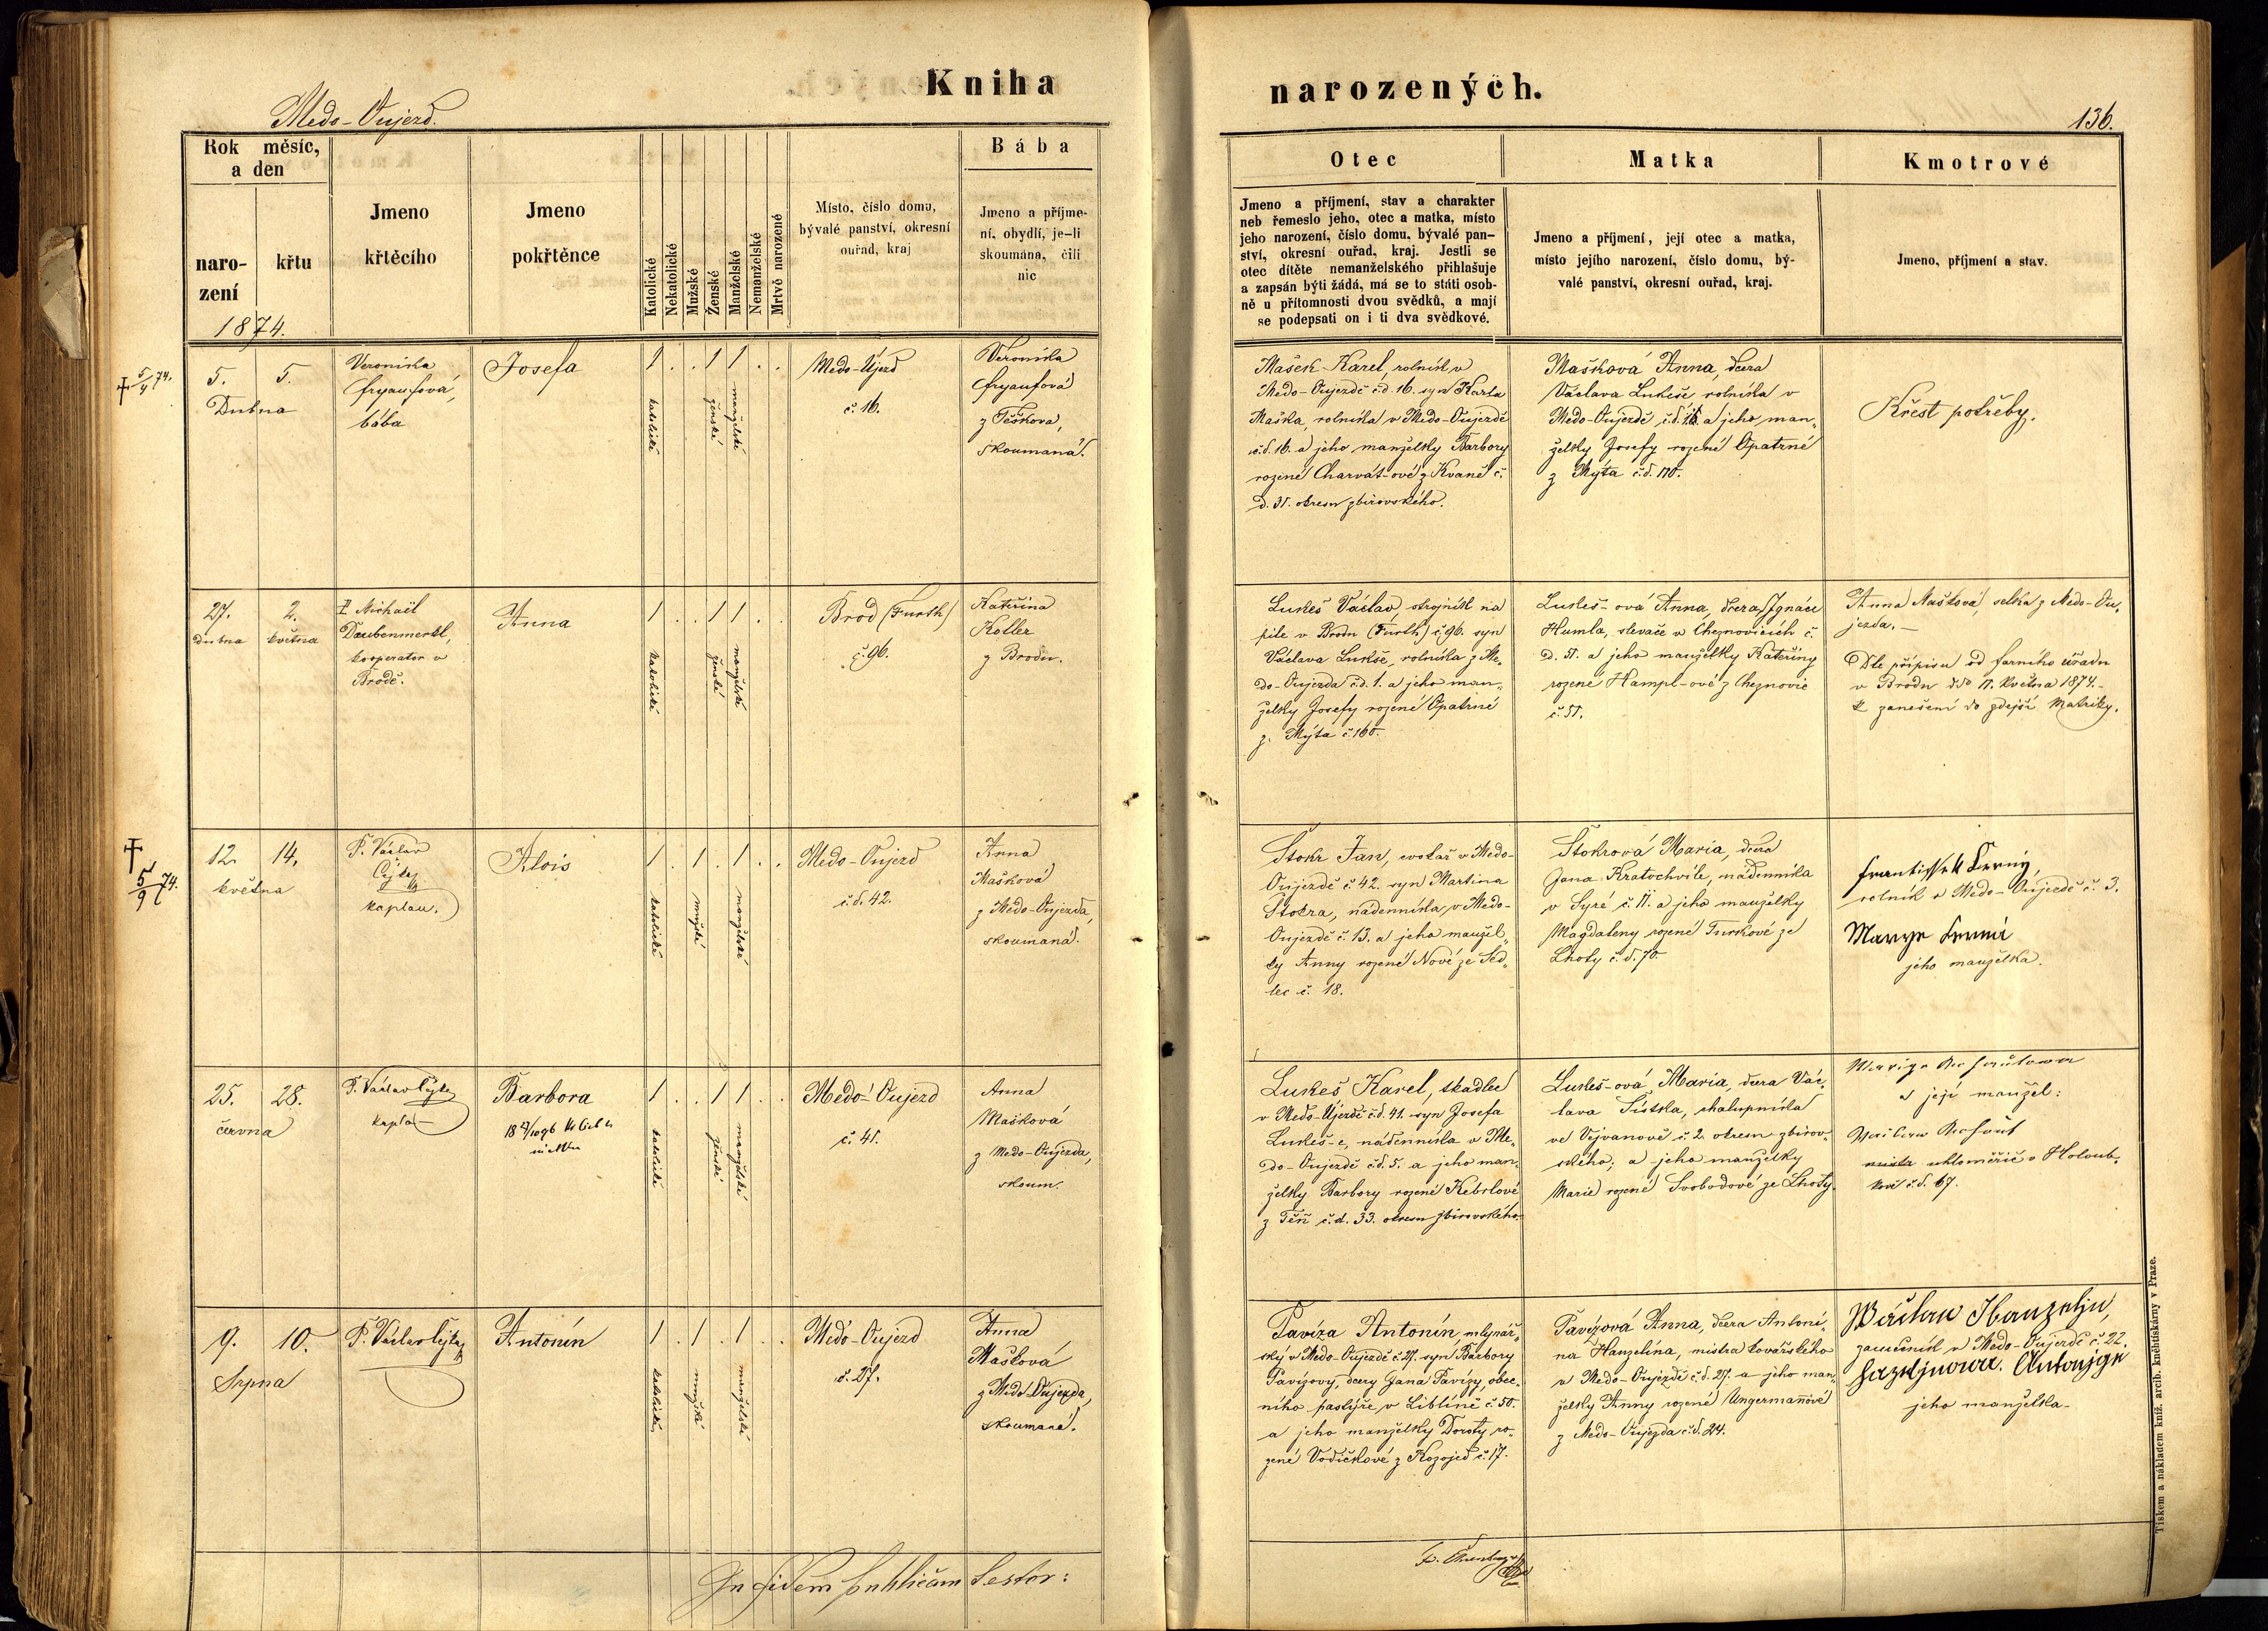 Kniha
narozených.
Medo-Oujezd.
136.
Rok měsíc,
a den
naro-
zení
křtu
1874.
Jmeno
křtěcího
Jmeno
pokřtěnce
Katolické
Nekatolické
Mužské
Ženské
Manželské
Nemanželské
Mrtvě narozené
Místo, číslo domu,
bývalé panství, okresní
ouřad, kraj
Bába
Jmeno a příjme-
ní, obydlí, je-li
skoumána, čili
nic
Otec
Jmeno a příjmení, stav a charakter
neb řemeslo jeho, otec a matka, místo
jeho narození, číslo domu, bývalé pan-
ství, okresní ouřad, kraj. Jestli se
otec dítěte nemanželského přihlašuje
a zapsán býti žádá, má se to státi osob-
ně u přítomnosti dvou svědků, a mají
se podepsati on i ti dva svědkové.
Matka
Jmeno a příjmení, její otec a matka,
místo jejího narození, číslo domu, bý-
valé panství, okresní ouřad, kraj.
Kmotrové
Jmeno, příjmení a stav.
† 5/4 74.
5. 5.
Dubna
Veronika
bába
Josefa
1 . . 1 1 . .
katolické
ženské
manželské
Medo-Újezd
č. 16.
Veronika
z Těškova,
skoumaná.
Mašek Karel, rolník v
Medo-Oujezdě č.d. 16. syn Karla
Maška, rolníka v Medo-Oujezdě
č.d. 16. a jeho manželky Barbory
rozené Charvát-ové z Kvaně č.
d. 31. okresu zbirovského.
Mašková Anna, dcera
Václava Lukeše, rolníka v
Medo-Oujezdě, č.d. a jeho man-
želky Josefy rozené Opatrné
z Mýta č.d. 170.
Křest potřeby.
27. 2.
dubna května
P. Michaël
Daubenmerkl,
kooperator v
Brodě.
Anna
1 . . 1 1 . .
katolické
ženské
manželské
Brod (Furth)
č. 96.
Kateřina
Koller
z Brodu.
Lukeš Václav, strojník na
pile v Brodu (Furth) č. 96. syn
Václava Lukše, rolníka z Me-
do-Oujezda č.d. 1. a jeho man-
želky Josefy rozené Opatrné
z Mýta č. 160.
Lukeš-ová Anna, dcera Ignáce
Humla, slevače v Cheznovicích č.
d. 51. a jeho manželky Kateřiny
rozené Hampl-ové z Cheznovic
č. 51.
Anna Mašková, selka z Medo-Ou-
jezda.
Dle přípisu od farního úřadu
v Brodu ddo 11. května 1874.
k zanešení do zdejší Matriky.
† 5/9 74.
12. 14.
května
P. Václav
Cejka
kaplan.
Alois
1 . 1 . 1 . .
katolické
mužské
manželské
Medo-Oujezd
č.d. 42.
Anna
Mašková
z Medo-Oujezda,
skoumaná.
Štokr Jan, cvokař v Medo-
Oujezdě č. 42. syn Martina
Štokra, nádenníka, v Medo-
Oujezdě č. 13. a jeho manžel-
ky Anny rozené Nové ze Sed-
lec č. 18.
Štokrová Maria, dcera
Jana Kratochvíle, nádenníka
v Syré č. 11. a jeho manželky
Magdaleny rozené Turkové ze
Lhoty č.d. 70.
Frantissek Černý,
rolník v Medo-Oujezdě č. 3.
Marye Černá
jeho manželka.
25. 28.
června
P. Václav Cejka
kaplan
Barbora
1 . . 1 1 . .
katolické
ženské
manželské
Medo-Oujezd
č. 41.
Anna
Mašková
z Medo-Oujezda,
skoum.
Lukeš Karel, tkadlec
v Medo-Újezdě č.d. 41. syn Josefa
Lukeš-e, nádenníka v Me-
do-Oujezdě č.d. 5. a jeho man-
želky Barbory rozené Kebrlové
z Těň č.d. 33. okresu zbirovského.
Lukeš-ová Maria, dcera Vác-
lava Šístka, chalupníka
ve Vejvanově č. 2. okresu zbirov-
ského; a jeho manželky
Marie rozené Svobodové ze Lhoty.
a její manžel:
uhloměřič v Holoub-
kově č.d. 67.
9. 10.
Srpna
P. Václav Cejka
Antonín
1 . 1 . 1 . .
katolické
mužské
manželské
Medo-Oujezd
č. 27.
Anna
Mašková
z Medo-Oujezda,
skoumaná.
Pavíza Antonín, mlynář-
ský v Medo-Oujezdě č. 27. syn Barbory
Pavízovy, dcery Jana Pavízy, obec-
ního pastýře v Liblíně č. 50.
a jeho manželky Doroty ro-
zené Vodičkové z Kozojed č. 17.
Pavízová Anna, dcera Antoní-
na Hanzelína, mistra kovářského
v Medo-Oujezdě č.d. 27. a jeho man-
želky Anny rozené Ungermannové
z Medo-Oujezda č.d. 24.
Wácslaw Hanzeljn,
zámečník v Medo-Oujezdě č. 22.
Hanzeljnowa Antonjge
jeho manželka
In fidem publicam testor:
Tiskem a nákladem kníž. arcib. knihtiskárny v Praze.